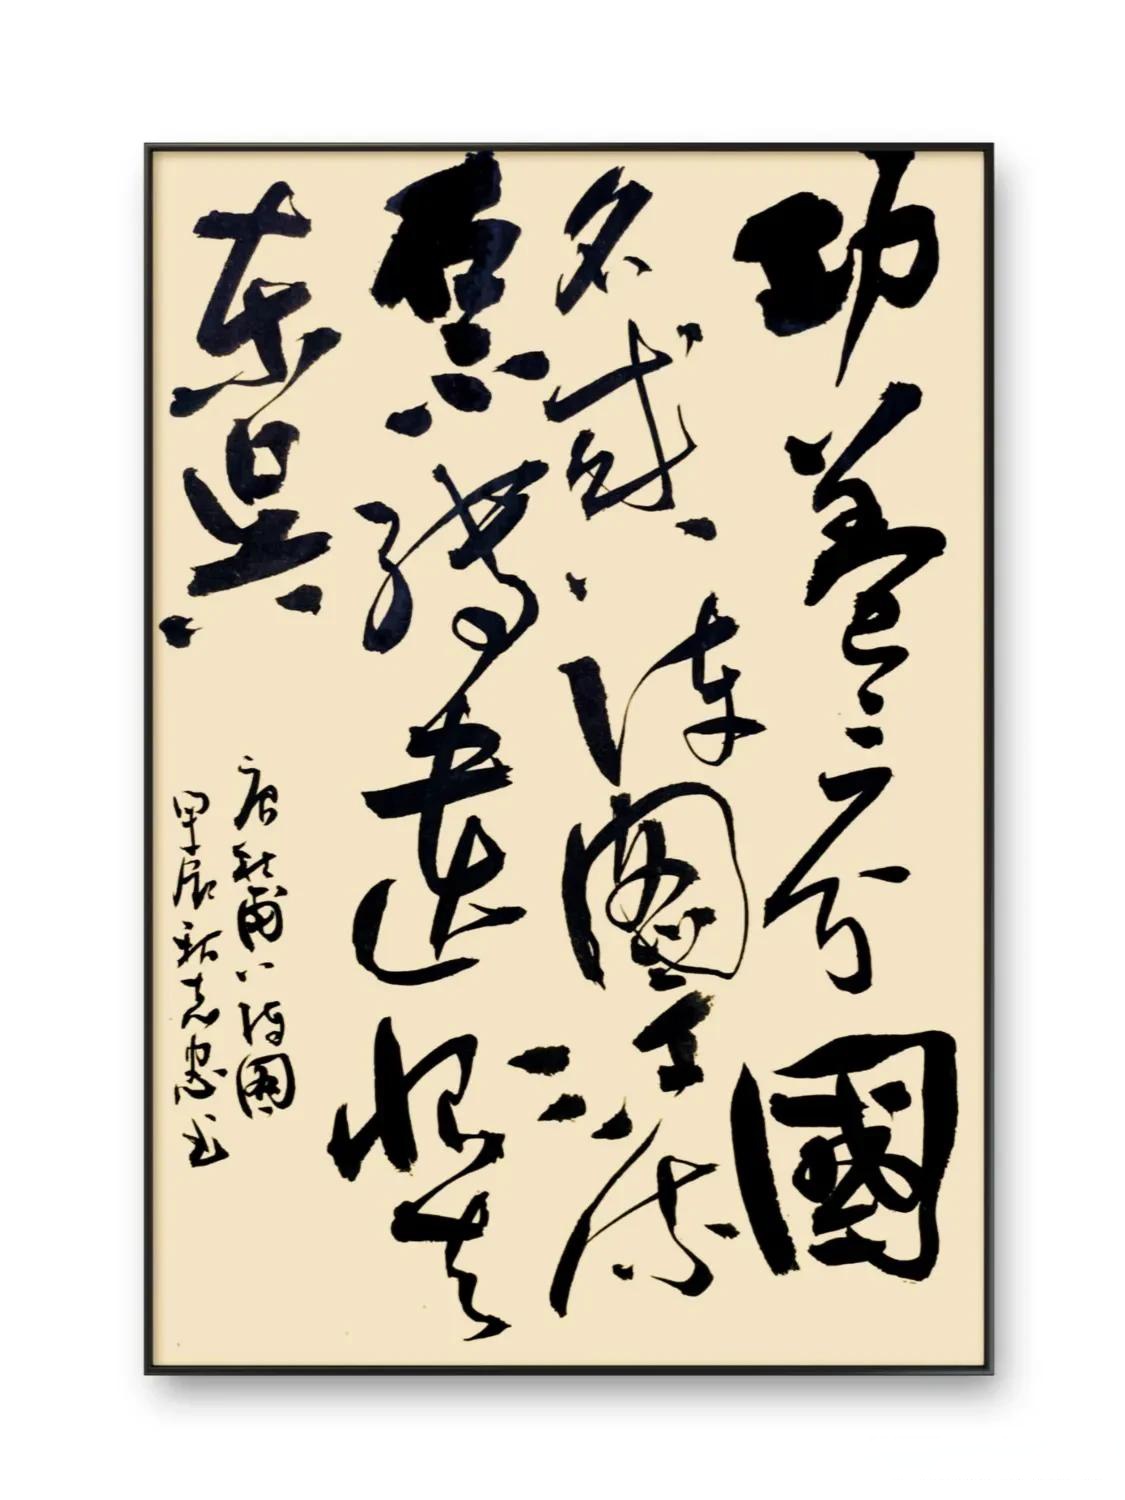 功蓋三分國
名成八陣圖江流
石不轉遺恨失
东吴
唐杜甫八陣圖
甲辰秋志忠书